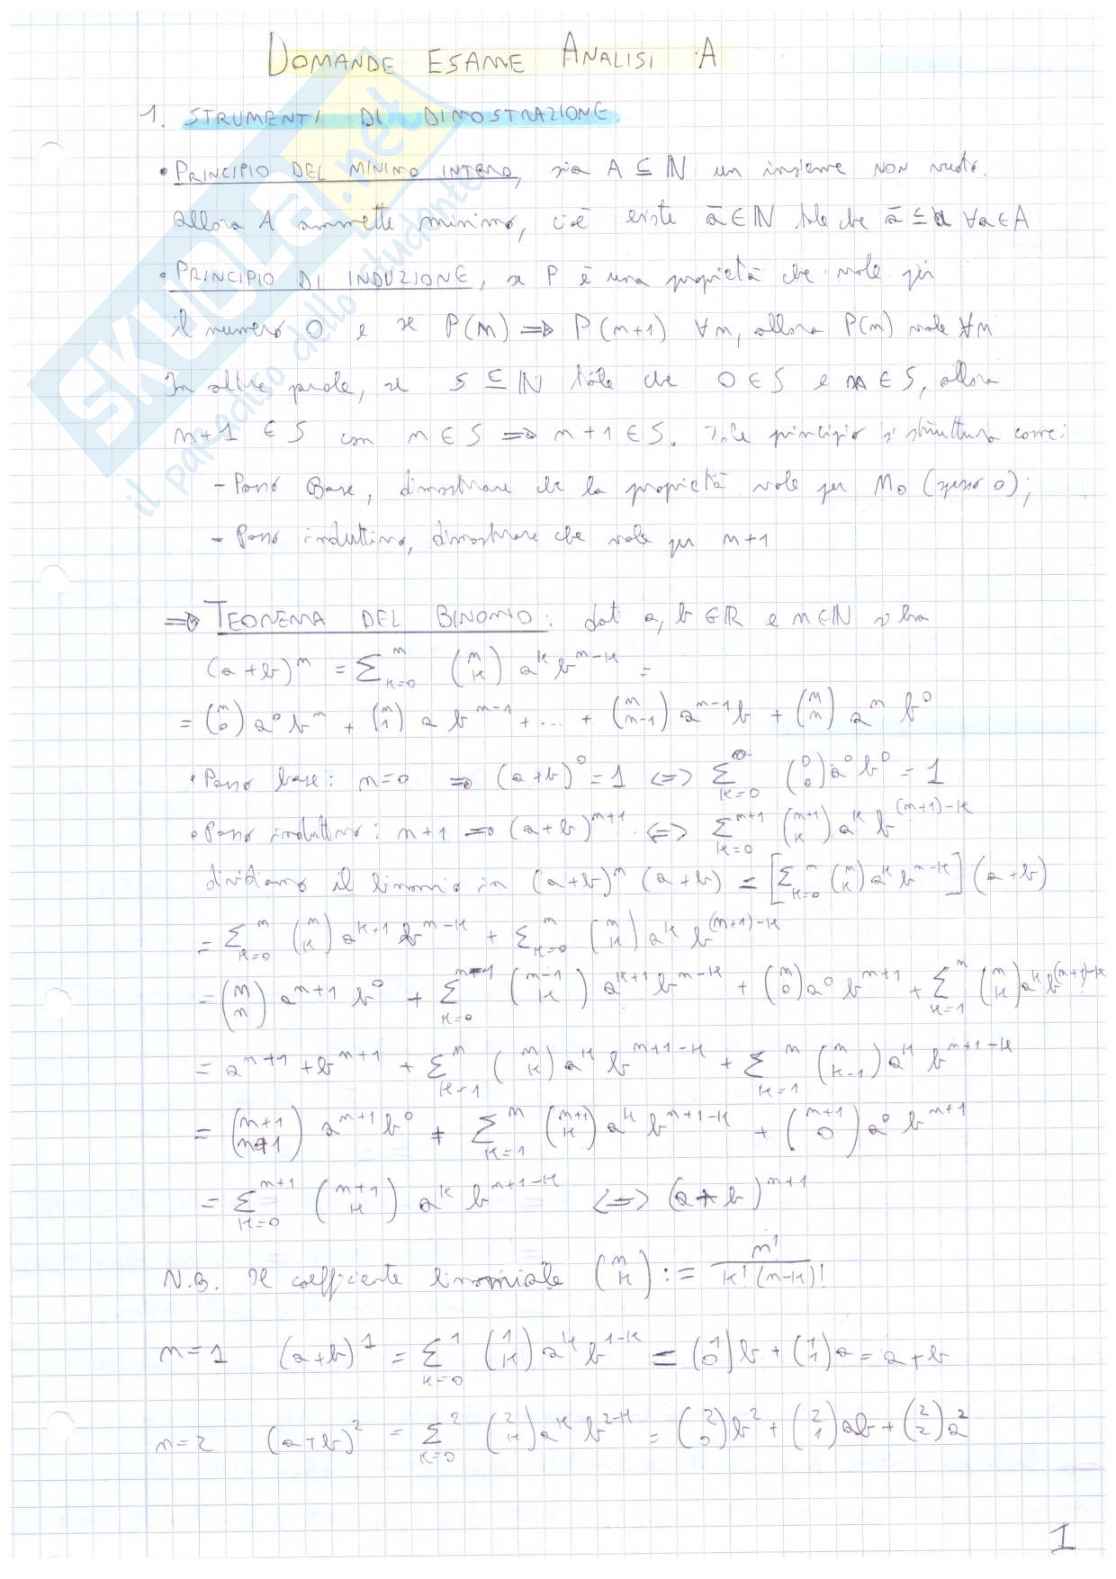 DOMANDE ESAME ANALISI A
1. STRUMENTI DI DIMOSTRAZIONE.
• PRINCIPIO DEL MINIMO INTERO, sia A ⊆ ℕ un insieme NON vuoto.
allora A ammette minimo, cioè esiste ā ∈ ℕ tale che ā ≤ a ∀a ∈ A
• PRINCIPIO DI INDUZIONE, se P è una proprietà che vale per
il numero 0 e se P(n) ⇒ P(n+1) ∀n, allora P(n) vale ∀n
In altre parole, se S ⊆ ℕ tale che 0 ∈ S e n ∈ S, allora
n+1 ∈ S con n ∈ S ⇒ n+1 ∈ S. Tale principio si struttura come:
- Passo Base, dimostrare che la proprietà vale per n₀ (spesso 0);
- Passo induttivo, dimostrare che vale per n+1
⇒ TEOREMA DEL BINOMIO: dati a, b ∈ ℝ e n ∈ ℕ si ha
(a+b)^n = Σ_{k=0}^{n} (n k) a^k b^{n-k} =
= (n 0) a^0 b^n + (n 1) a b^{n-1} + ... + (n n-1) a^{n-1} b + (n n) a^n b^0
• Passo base: n=0 ⇒ (a+b)^0 = 1 <=> Σ_{k=0}^{0} (0 0) a^0 b^0 = 1
• Passo induttivo: n+1 ⇒ (a+b)^{n+1} <=> Σ_{k=0}^{n+1} (n+1 k) a^k b^{(n+1)-k}
dividiamo il binomio in (a+b)^n (a+b) = [Σ_{k=0}^{n} (n k) a^k b^{n-k}] (a+b)
= Σ_{k=0}^{n} (n k) a^{k+1} b^{n-k} + Σ_{k=0}^{n} (n k) a^k b^{(n+1)-k}
= (n n) a^{n+1} b^0 + Σ_{k=0}^{n-1} (n-1 k) a^{k+1} b^{n-k} + (n 0) a^0 b^{n+1} + Σ_{k=1}^{n} (n k) a^k b^{(n+1)-k}
= a^{n+1} + b^{n+1} + Σ_{k=1}^{n} (n k) a^k b^{n+1-k} + Σ_{k=1}^{n} (n k-1) a^k b^{n+1-k}
= (n+1 n+1) a^{n+1} b^0 + Σ_{k=1}^{n} (n+1 k) a^k b^{n+1-k} + (n+1 0) a^0 b^{n+1}
= Σ_{k=0}^{n+1} (n+1 k) a^k b^{n+1-k} <=> (a+b)^{n+1}
N.B. Il coefficiente binomiale (n k) := n! / k!(n-k)!
n=1 (a+b)^1 = Σ_{k=0}^{1} (1 k) a^k b^{1-k} = (1 0) b + (1 1) a = a+b
n=2 (a+b)^2 = Σ_{k=0}^{2} (2 k) a^k b^{2-k} = (2 0) b^2 + (2 1) ab + (2 2) a^2
1
SKUOLA.net
il paradiso dello studente